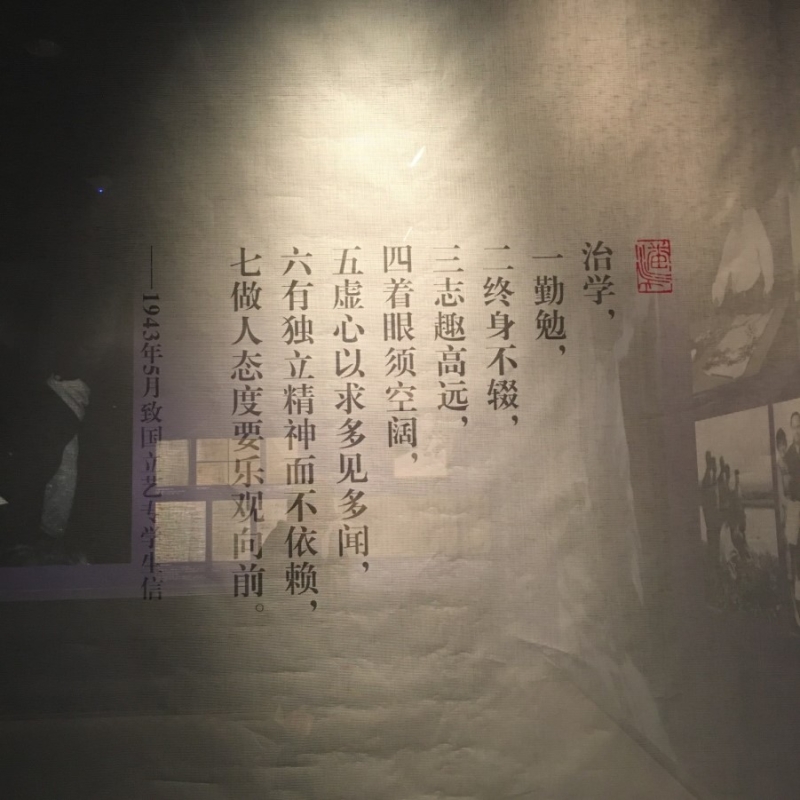 治学，
一勤勉，
二终身不辍，
三志趣高远，
四着眼须空阔，
五虚心以求多见多闻，
六有独立精神而不依赖，
七做人态度要乐观向前。
——1943年5月致国立艺专学生信